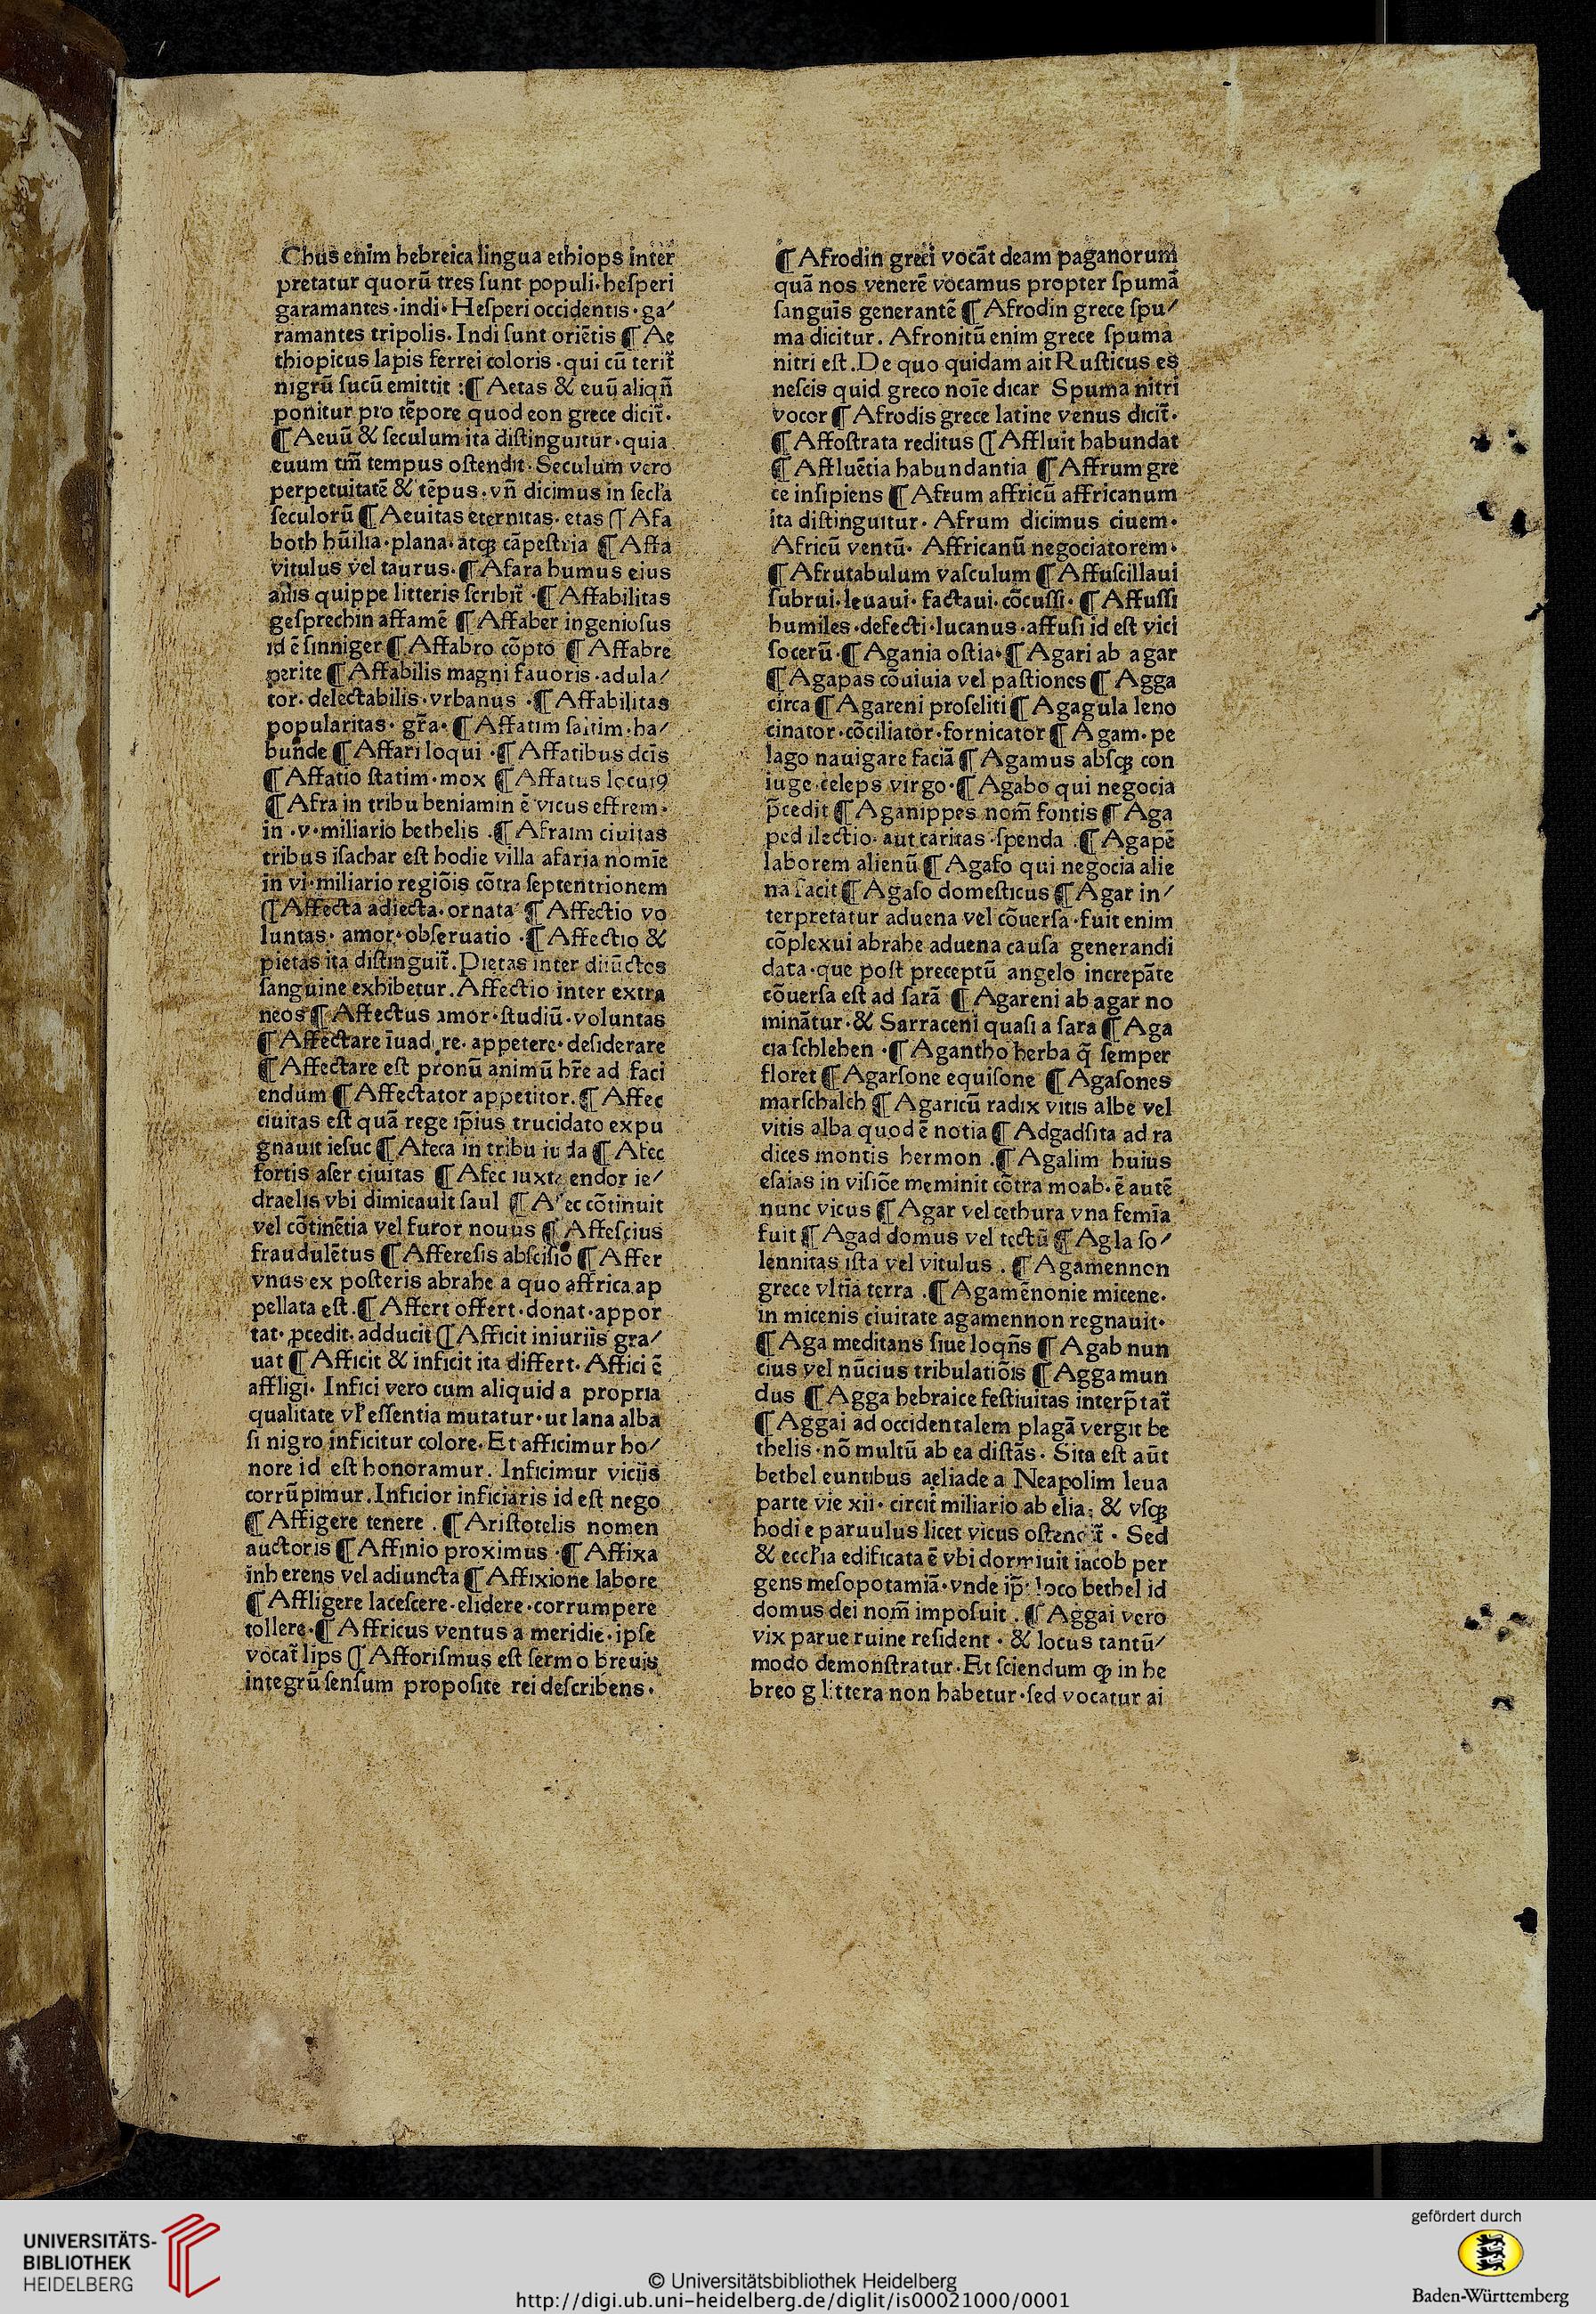 Chus enim hebreica lingua ethiops inter
pretatur quorū tres ſunt populi·heſperi
garamantes·indi·Heſperi occidentis·ga⸗
ramantes tripolis. Indi ſunt oriētis ¶ Ae
thiopicus lapis ferrei coloris·qui cū terit̄
nigrū ſucū emittit :¶ Aetas & euū aliqn̄
ponitur pro tēpore quod eon grece dicit̄.
¶ Aeuū & ſeculum ita diſtinguitur·quia
euum tm̄ tempus oſtendit·Seculum vero
perpetuitatē & tēpus·vn̄ dicimus in ſecl'a
ſeculorū ¶ Aeuitas eternitas·etas ¶ Afa
both hūilia·plana·atqꝫ cāpeſtria ¶ Affa
vitulus vel taurus·¶ Afara humus eius
aliis quippe litteris ſcribit̄·¶ Affabilitas
geſprechin affamē ¶ Affaber ingenioſus
id ē ſinniger ¶ Affabro cōpto ¶ Affabre
perite ¶ Affabilis magni fauoris·adula⸗
tor·delectabilis·vrbanus·¶ Affabilitas
popularitas·gr̄a·¶ Affatim ſaltim·ha⸗
bunde ¶ Affari loqui·¶ Affatibus dc̄is
¶ Affatio ſtatim·mox ¶ Affatus locutꝰ
¶ Afra in tribu beniamin ē vicus effrem·
in·v·miliario bethelis·¶ Afraim ciuitas
tribus iſachar eſt hodie villa afaria nomīe
in vi·miliario regiōis cōtra ſeptentrionem
¶ Affecta adiecta·ornata ¶ Affectio vo
luntas·amor·obſeruatio·¶ Affectio &
pietas ita diſtinguit̄. Pietas inter diiūctos
ſanguine exhibetur. Affectio inter extra
neos ¶ Affectus amor·ſtudiū·voluntas
¶ Affectare īuadere·appetere·deſiderare
¶ Affectare eſt pronū animū hr̄e ad faci
endum ¶ Affectator appetitor. ¶ Affec
ciuitas eſt quā rege ip̄ius trucidato expu
gnauit ieſuc ¶ Afeca in tribu iuda ¶ Afec
fortis aſer ciuitas ¶ Afec iuxta endor ie⸗
draelis vbi dimicauit ſaul ¶ Afec cōtinuit
vel cōtinētia vel furor nouus ¶ Affeſcius
fraudulētus ¶ Affereſis abſciſio ¶ Affer
vnus ex poſteris abrahe a quo affrica ap
pellata eſt·¶ Affert offert·donat·appor
tat·ꝓcedit·adducit ¶ Afficit iniuriis gra⸗
uat ¶ Afficit & inficit ita differt·Affici ē
affligi·Infici vero cum aliquid a propria
qualitate vl' eſſentia mutatur·ut lana alba
ſi nigro inficitur colore·Et afficimur ho⸗
nore id eſt honoramur. Inficimur viciis
corrūpimur. Inficior inficiaris id eſt nego
¶ Affigere tenere. ¶ Ariſtotelis nomen
auctoris ¶ Affinio proximus·¶ Affixa
inherens vel adiuncta ¶ Affixione labore
¶ Affligere laceſcere·elidere·corrumpere
tollere·¶ Affricus ventus a meridie·ipſe
vocat̄ lips ¶ Afforiſmus eſt ſermo breuis
integrū ſenſum propoſite rei deſcribens·
¶ Afrodin greci vocāt deam paganorum
quā nos venerē vocamus propter ſpumā
ſanguīs generantē ¶ Afrodin grece ſpu⸗
ma dicitur. Afronitū enim grece ſpuma
nitri eſt. De quo quidam ait Ruſticus es
neſcis quid greco noīe dicar Spuma nitri
vocor ¶ Afrodis grece latine venus dicit̄·
¶ Affoſtrata reditus ¶ Affluit habundat
¶ Affluētia habundantia ¶ Affrum gre
ce inſipiens ¶ Afrum affricū affricanum
ita diſtinguitur·Afrum dicimus ciuem·
Africū ventū·Affricanū negociatorem·
¶ Afrutabulum vaſculum ¶ Affuſcillaui
ſubrui·leuaui·factaui·cōcuſſi·¶ Affuſſi
humiles·defecti·lucanus·affuſi id eſt vici
ſocerū·¶ Agania oſtia·¶ Agari ab agar
¶ Agapas cōuiuia vel paſtiones ¶ Agga
circa ¶ Agareni proſeliti ¶ Agagula leno
cinator·cōciliator·fornicator ¶ Agam·pe
lago nauigare faciā ¶ Agamus abſqꝫ con
iuge·celeps virgo·¶ Agabo qui negocia
p̄cedit ¶ Aganippes nom̄ fontis ¶ Aga
pe dilectio·aut caritas·ſpenda·¶ Agapē
laborem alienū ¶ Agafo qui negocia alie
na facit ¶ Agaſo domeſticus ¶ Agar in⸗
terpretatur aduena vel cōuerſa·fuit enim
cōplexui abrahe aduena cauſa generandi
data·que poſt preceptū angelo increpāte
cōuerſa eſt ad ſarā ¶ Agareni ab agar no
minātur·& Sarraceni quaſi a ſara ¶ Aga
cia ſchlehen·¶ Agantho herba q̄ ſemper
floret ¶ Agarſone equiſone ¶ Agaſones
marſchalch ¶ Agaricū radix vitis albe vel
vitis alba quod ē notia ¶ Adgadſita ad ra
dices montis hermon·¶ Agalim huius
eſaias in viſiōe meminit cōtra moab·ē autē
nunc vicus ¶ Agar vel cethura vna femīa
fuit ¶ Agad domus vel tectū ¶ Agla ſo⸗
lennitas iſta vel vitulus. ¶ Agamennon
grece vltīa terra·¶ Agamēnonie micene·
in micenis ciuitate agamennon regnauit·
¶ Aga meditans ſiue loqn̄s ¶ Agab nun
cius vel nūcius tribulatiōis ¶ Agga mun
dus ¶ Agga hebraice feſtiuitas interp̄tat̄
¶ Aggai ad occidentalem plagā vergit be
thelis·nō multū ab ea diſtās·Sita eſt aūt
bethel euntibus aeliade a Neapolim leua
parte vie xii·circit̄ miliario ab elia·& vſqꝫ
hodie paruulus licet vicus oſtendit̄·Sed
& eccl'ia edificata ē vbi dormiuit iacob per
gens meſopotamiā·vnde ip̄i loco bethel id
domus dei nom̄ impoſuit. ¶ Aggai vero
vix parue ruine reſident·& locus tantū⸗
modo demonſtratur·Et ſciendum qꝫ in he
breo g littera non habetur·ſed vocatur ai
UNIVERSITÄTS-
BIBLIOTHEK
HEIDELBERG
© Universitätsbibliothek Heidelberg
http://digi.ub.uni-heidelberg.de/diglit/is00021000/0001
gefördert durch
Baden-Württemberg